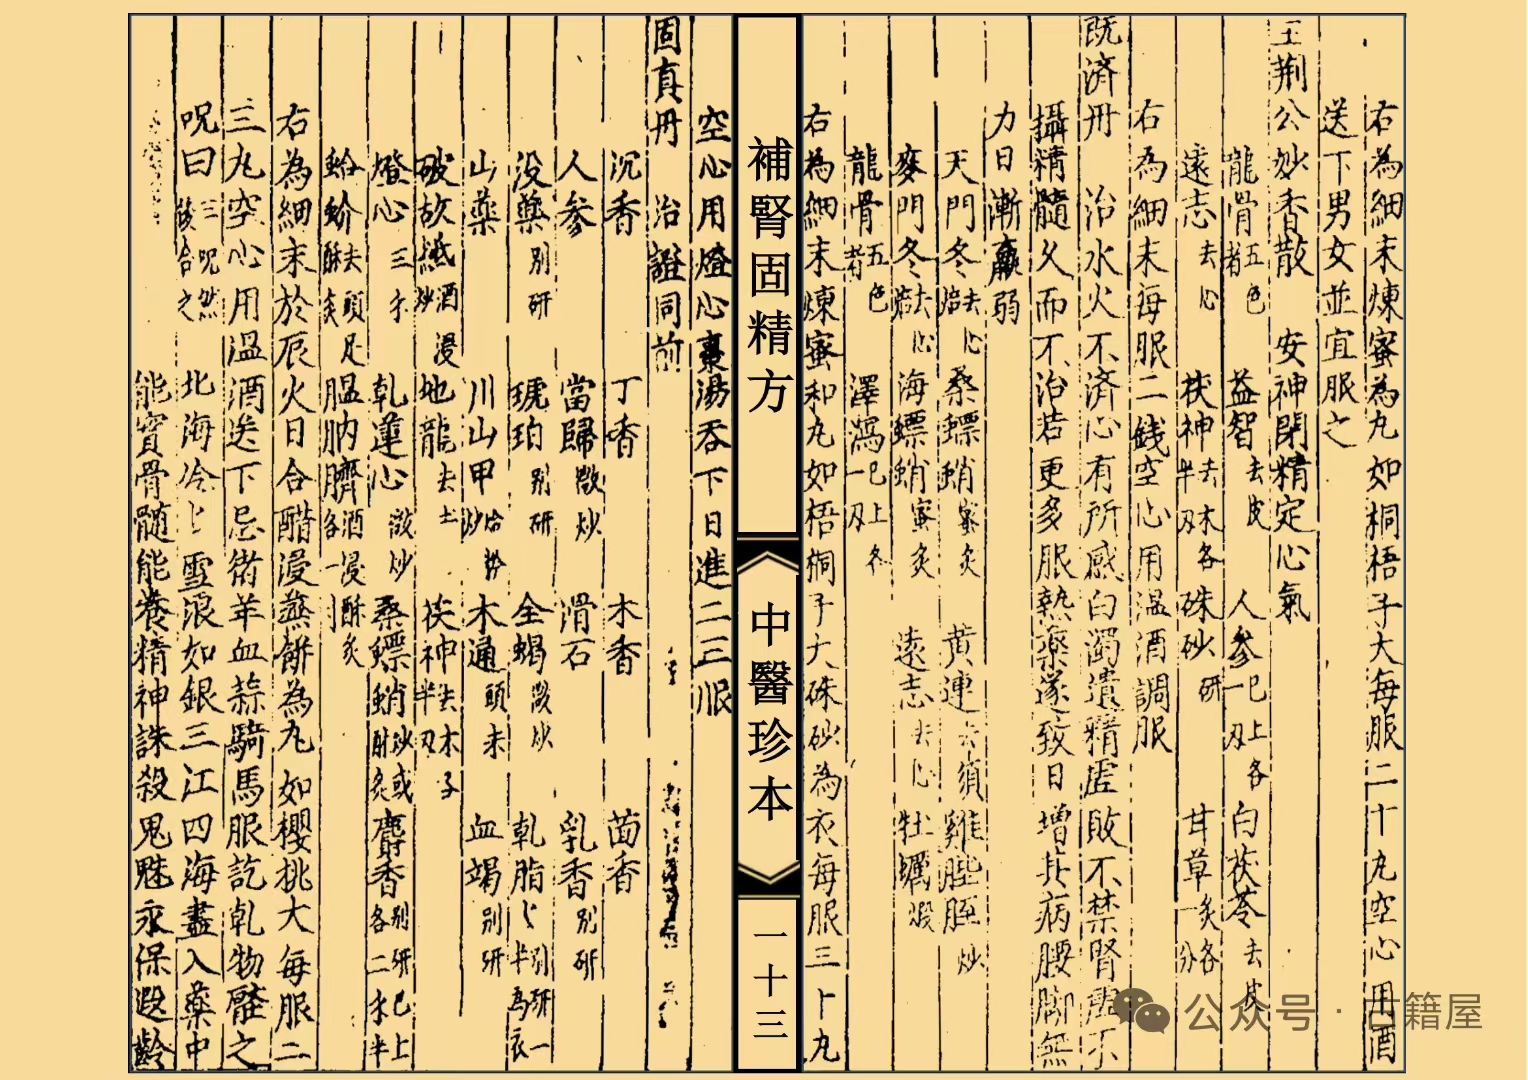 右為細末煉蜜為丸如桐梧子大每服二十丸空心用酒
送下男女並宜服之
王荊公妙香散　安神閉精定心氣
龍骨五色者　益智去皮　人參一已上各刄　白茯苓去皮
遠志去心　茯神去木各半刄　硃砂研　甘草炙各一分
右為細末每服二錢空心用温酒調服
既済丹　治水火不済心有所感白濁遺精虛敗不禁腎虛不
攝精髓久而不治若更多服熱藥遂致日增其病腰脚無
力日漸羸弱
天門冬去心焙　桑鏢蛸蜜炙　黃連去須　雞膍胵炒
麥門冬去心焙　海鏢蛸蜜炙　遠志去心　牡蠣煅
龍骨五色者　澤瀉已上各一刄
右為細末煉蜜和丸如梧桐子大硃砂為衣每服三十丸
空心用燈心棗湯吞下日進二三服
固真丹　治證同前
沉香　丁香　木香　茴香
人參　當歸微炒　滑石　乳香別研
没藥別研　琥珀別研　全蝎微炒　乾脂別研一半為衣
山藥　川山甲蛤粉炒　木通頭末　血竭別研
破故紙酒浸炒　地龍去土　茯神去木半刄子
燈心三子　乾蓮心微炒　桑鏢蛸炒或酥炙　麝香別研已上各二水半
蛤蚧去頭足酥炙　膃肭臍酒浸酥炙各一
右為細末於辰火日合醋浸蒸餅為丸如櫻桃大每服二
三丸空心用温酒送下忌猪羊血蒜騎馬服訖乾物壓之
呪曰三呪然後合之　北海冷上雪浪如銀三江四海盡入藥中
能實骨髓能養精神誅殺鬼魅永保遐齡
補腎固精方
中醫珍本
一十三
公众号·古籍屋